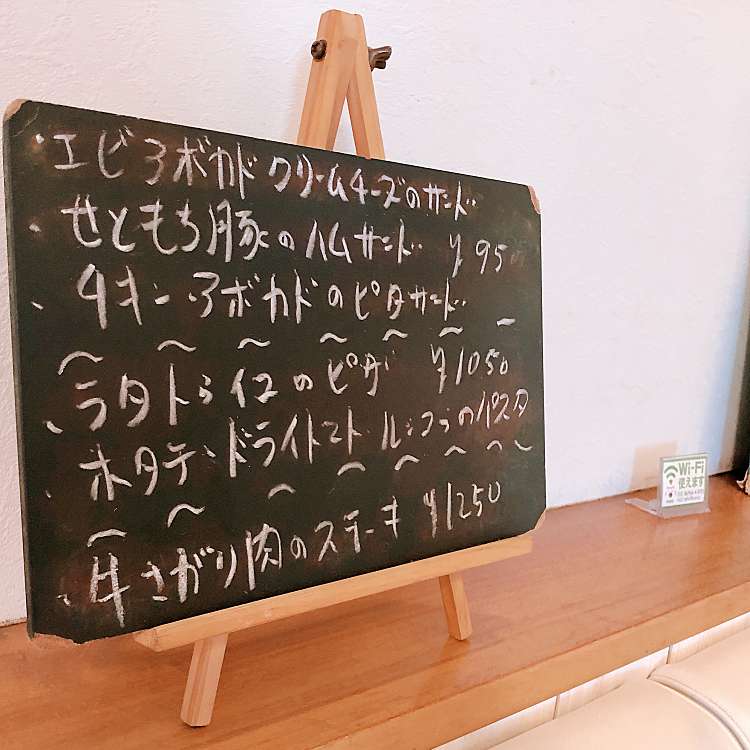 ・エビアボカドクリームチーズのサンド
・せともち豚のハムサンド ¥950
・チキン・アボカドのピタサンド
〜 〜 〜 〜 〜 〜 〜
・ラタトゥイユのピザ ¥1050
・ホタテ・ドライトマト・ルッコラのパスタ
〜 〜 〜 〜 〜 〜 〜 〜
・牛さがり肉のステーキ ¥1250
Wi-Fi
使えます